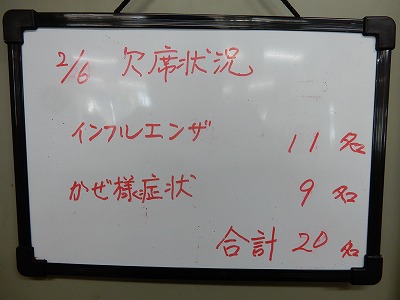 2/6 欠席状況
インフルエンザ 11名
かぜ様症状 9名
合計 20名